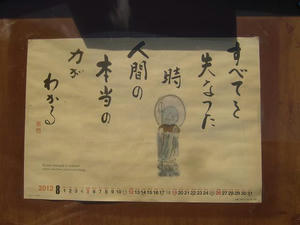 すべてを
失なった
時
人間の
本当の
力が
わかる
2012 8 1 2 3 4 5 6 7 8 9 10 11 12 13 14 15 16 17 18 19 20 21 22 23 24 25 26 27 28 29 30 31